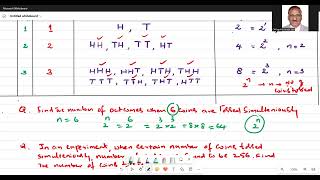 Untitled whiteboard
1 1 H, T 2 = 2¹
2 2 HH, TH, TT, HT 4 = 2², n=2
3 3 HHH, HHT, HTH, THH 8 = 2³, n=3
TTT, TTH, THT, HTT 2ⁿ → n → no of coins tossed
Q. Find the number of outcomes when 6 coins are tossed simultaneously
n = 6 2ⁿ = 2⁶ = 2³ × 2³ = 8×8 = 64 2ⁿ
Q. In an experiment, when certain number of coins tossed
simultaneously, number to be 256, find
the number of coins